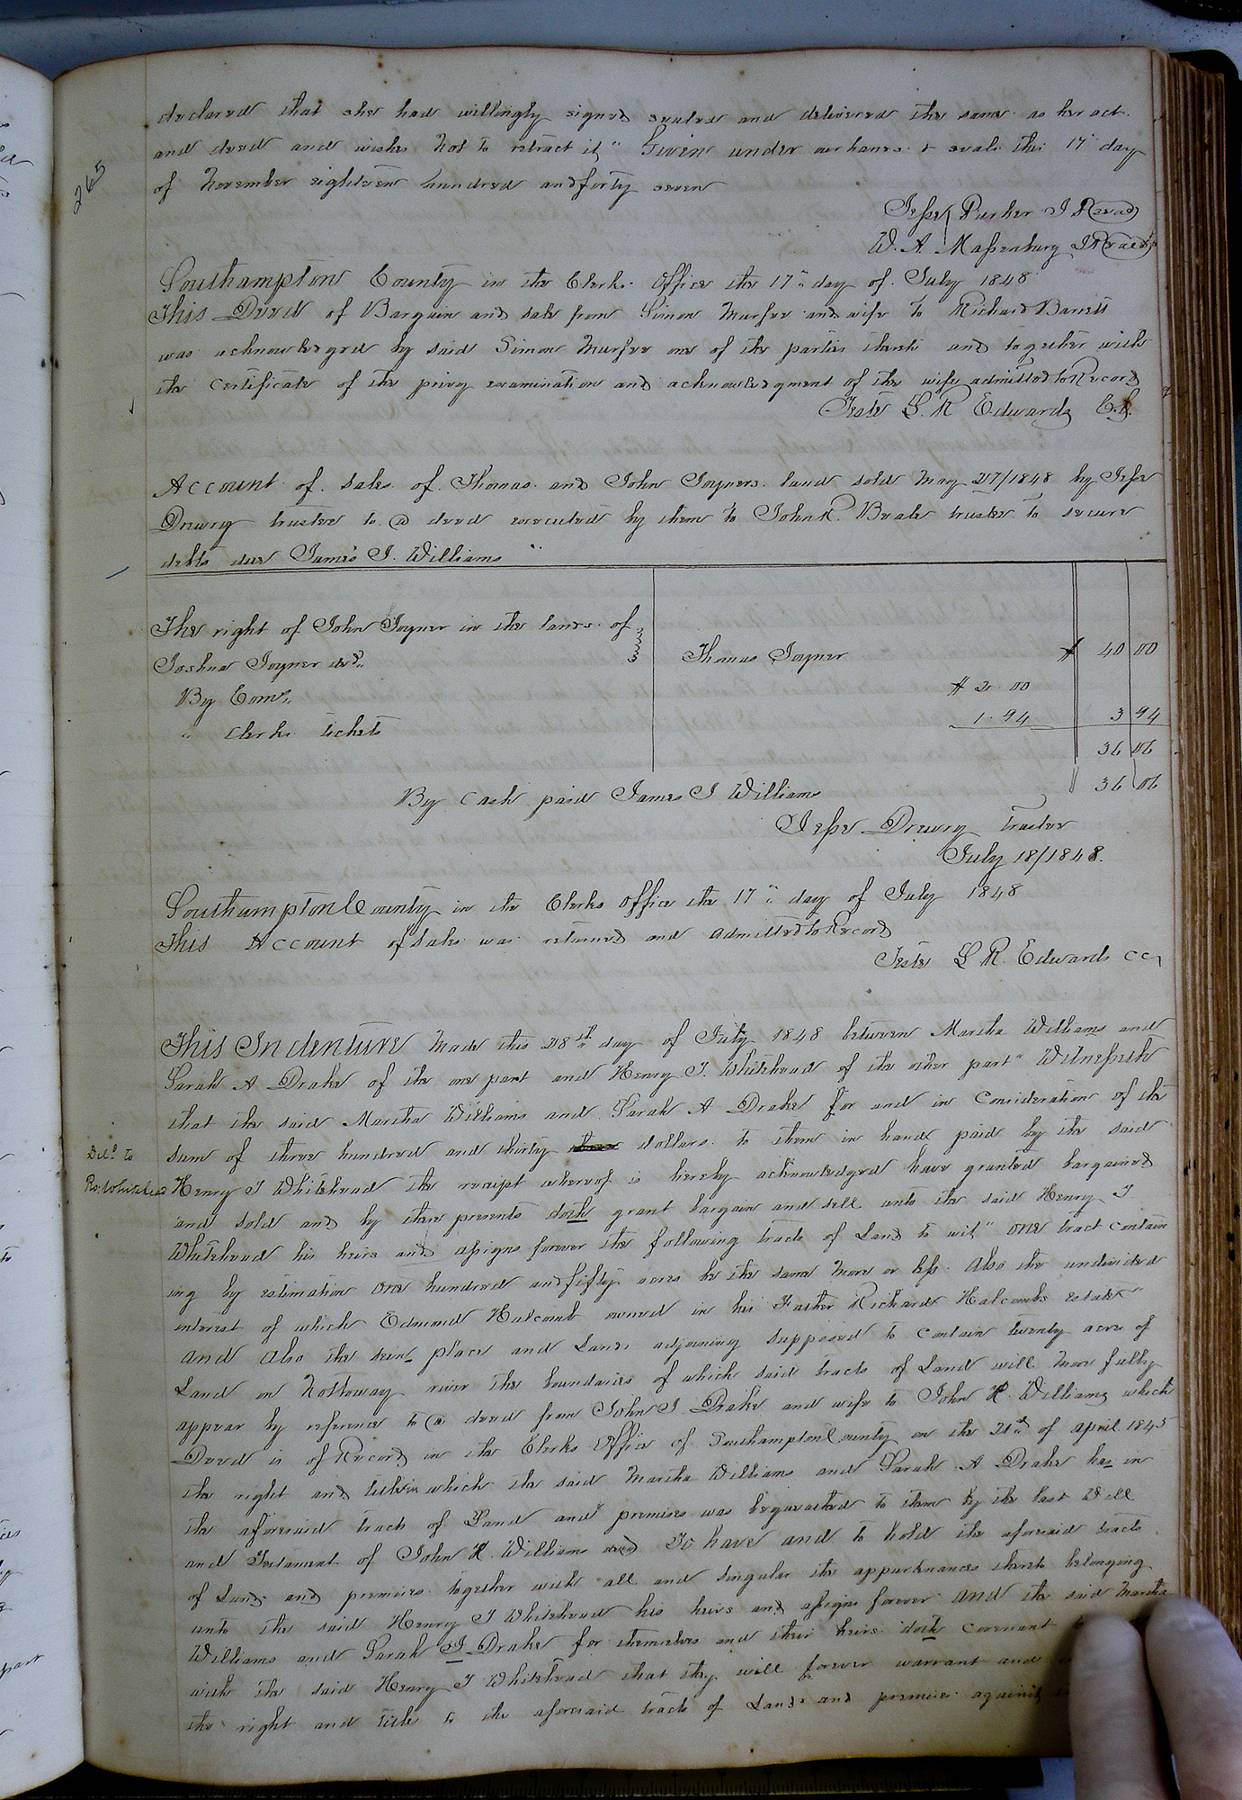 265
declared that she had willingly signed sealed and delivered the same as her act
and deed and wishes not to retract it" Given under our hands & seals this 17" day
of November eighteen hundred and forty seven
Jesse Parker J P (seal)
W. A. Massenburg J P (seal)
Southampton County in the Clerks Office the 17" day of July 1848
This Deed of Bargain and sale from Simon Murfee and wife to Richard Barrett
was acknowledged by said Simon Murfee one of the parties thereto and together with
the certificate of the privy examination and acknowledgment of the wife admitted to Record
Teste L. R. Edwards C.C.
Account of sales of Thomas and John Joyners land sold May 27/1848 by Jesse
Drewry trustee to a deed executed by them to John R. Beale trustee to secure
debts due James J. Williams "
The right of John Joyner in the lands of
Joshua Joyner decd. Thomas Joyner $ 40 00
By Coms. $ 2.00
" Clerks tickets 1.94 3 94
36 06
By Cash paid James J Williams 36 06
Jesse Drewry trustee
July 18/1848.
Southampton County in the Clerks Office the 17" day of July 1848
This Account of sales was returned and admitted to Record
Teste L R. Edwards CC
This Indenture made this 28th day of July 1848 between Martha Williams and
Sarah A Drake of the one part and Henry T. Whitehead of the other part" Witnesseth
that the said Martha Williams and Sarah A Drake for and in Consideration of the
sum of three hundred and thirty three dollars to them in hand paid by the said
Deld. to
Henry T Whitehead the receipt whereof is hereby acknowledged have granted bargained
and sold and by these presents doth grant bargain and sell unto the said Henry T
Whitehead his heirs and assigns forever the following tracts of Land to wit" one tract contain
ing by estimation one hundred and fifty acres be the same more or less. Also the undivided
interest of which Edmund Halcomb owned in his Father Richard Halcombs estate
and also the place and Lands adjoining supposed to contain twenty acres of
Land on Nottoway river the boundaries of which said tracts of Land will more fully
appear by reference to a deed from John J Drake and wife to John H. Williams which
Deed is of Record in the Clerks Office of Southampton County on the 21st of April 1845
the right and title in which the said Martha Williams and Sarah A Drake has in
the aforesaid tracts of Land and premises was bequeathed to them by the last Will
and Testament of John H. Williams decd To have and to hold the aforesaid tracts
of Land and premises together with all and singular the appurtenances thereto belonging
unto the said Henry T Whitehead his heirs and assigns forever and the said Martha
Williams and Sarah A Drake for themselves and their heirs doth covenant
with the said Henry T Whitehead that they will forever warrant and
the right and title to the aforesaid tracts of Lands and premises against